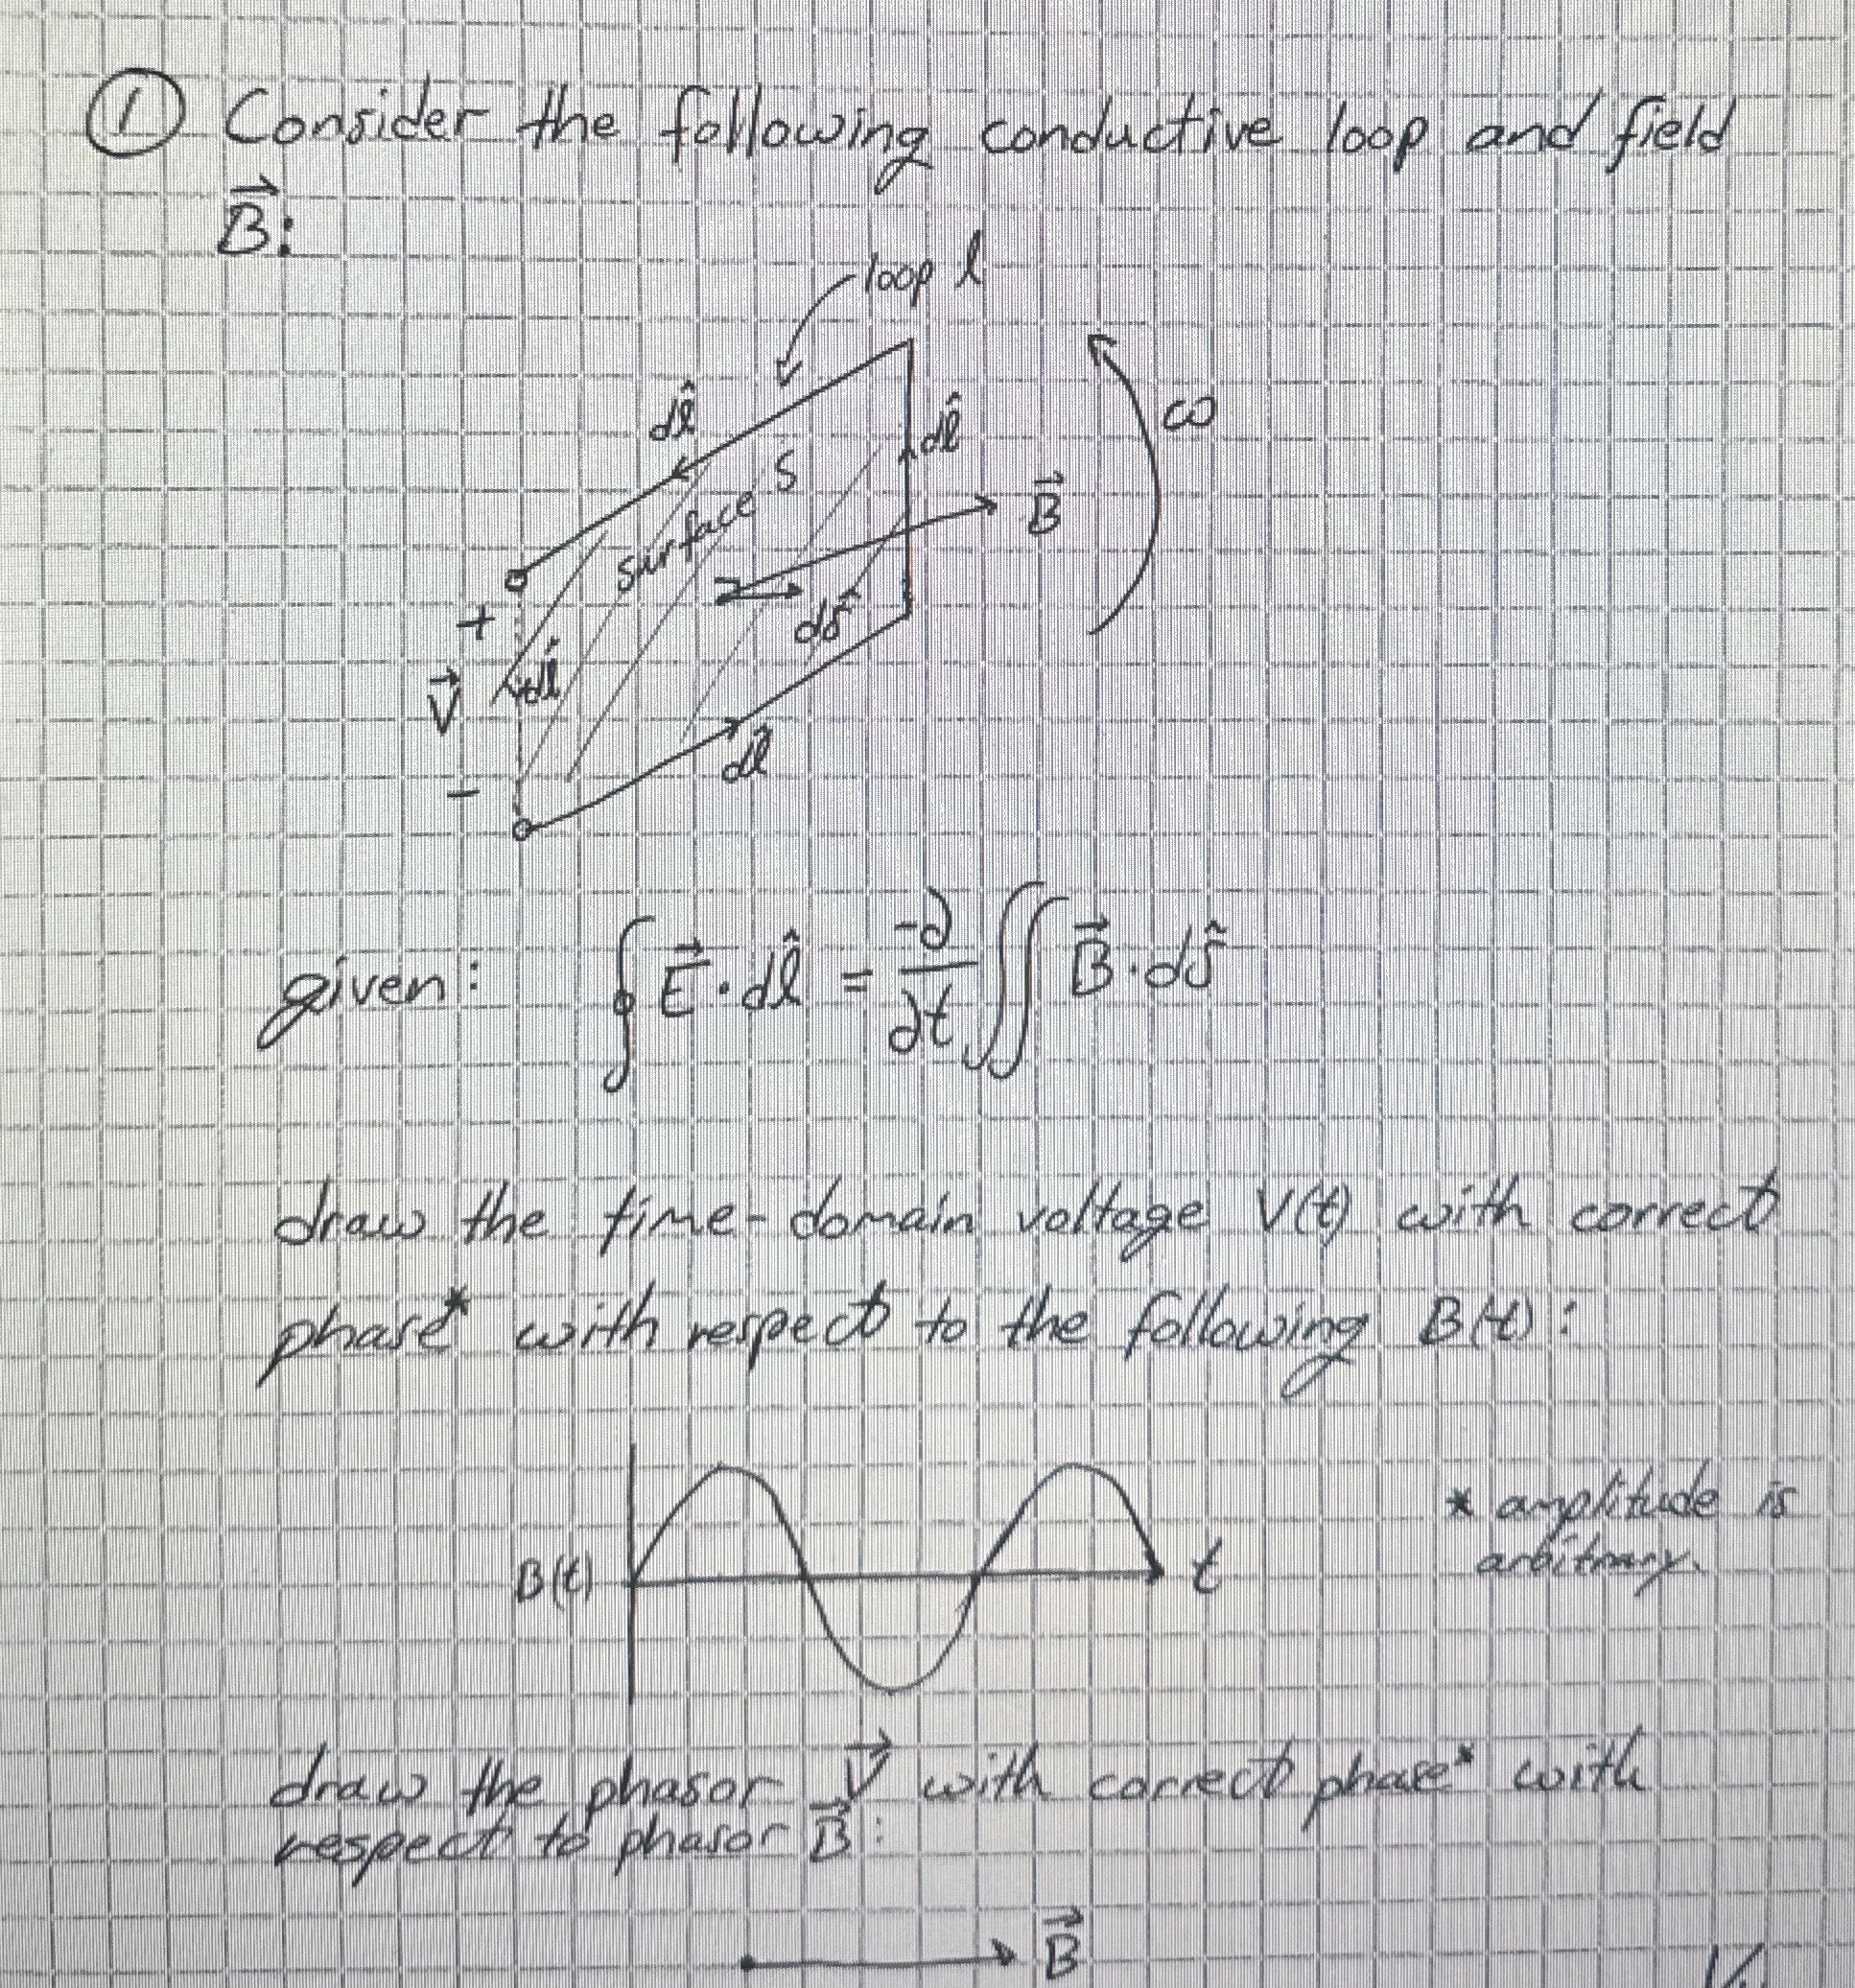 ① Consider the following conductive loop and field
B⃗:
loop l
dl̂
dl̂
ω
surface S
B⃗
dŝ
+
dl̂
V⃗
dl̂
−
given: ∮ E⃗ · dl̂ = -∂/∂t ∬ B⃗ · dŝ
draw the time-domain voltage V(t) with correct
phase* with respect to the following B(t):
* amplitude is
arbitrary.
B(t)
t
draw the phasor V⃗ with correct phase* with
respect to phasor B⃗:
B⃗